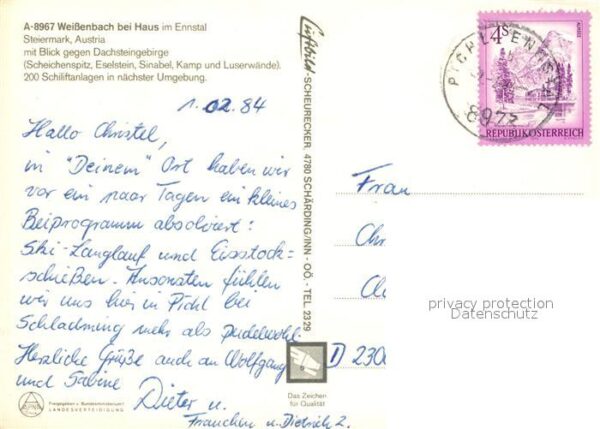 A-8967 Weißenbach bei Haus im Ennstal
Steiermark, Austria
mit Blick gegen Dachsteingebirge
(Scheichenspitz, Eselstein, Sinabel, Kamp und Luserwände).
200 Schiliftanlagen in nächster Umgebung.
1.02.84
Hallo Christel,
in "Deinem" Ort haben wir
vor ein paar Tagen ein kleines
Beiprogramm absolviert:
Ski-Langlauf und Eisstock-
schießen. Ansonsten fühlen
wir uns hier in Pichl bei
Schladming mehr als pudelwohl
Herzliche Grüße auch an Wolfgang
und Sabine
Dieter u.
Französchen u. Dietrich 2.
Freigegeben v. Bundesministerium f.
LANDESVERTEIDIGUNG
Luftbild SCHEURECKER, 4780 SCHÄRDING/INN - OÖ - TEL 2329
Das Zeichen
für Qualität
PICHL
8973
4S
REPUBLIK ÖSTERREICH
Frau
Chr
D 2300
privacy protection
Datenschutz